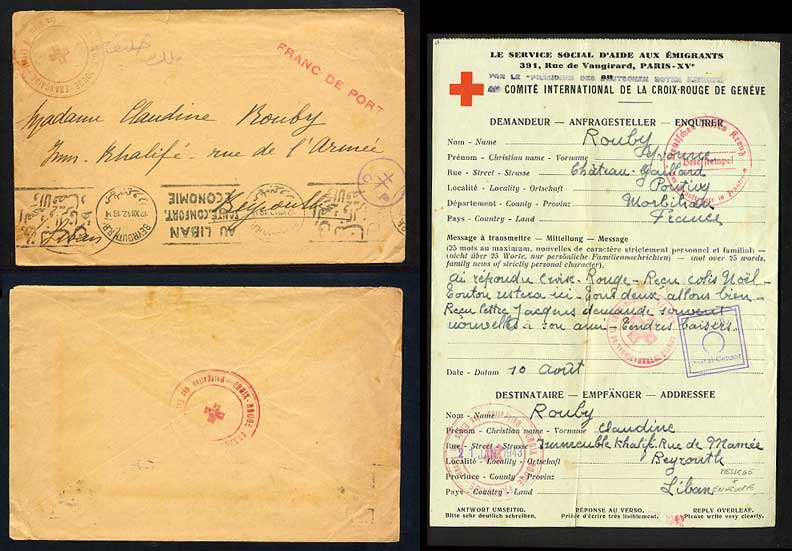 FRANC DE PORT
Madame Claudine Rouby
Imm. Khalifé - rue de l'Armée
Beyrouth
Liban
BEYROUTH R.P.
AU LIBAN
SANTE, CONFORT,
ECONOMIE
CROIX-ROUGE
LE SERVICE SOCIAL D'AIDE AUX ÉMIGRANTS
391, Rue de Vaugirard, PARIS-XVe
PAR LE PRÄSIDIUM DES DEUTSCHEN ROTEN KREUZES
AU COMITÉ INTERNATIONAL DE LA CROIX-ROUGE DE GENÈVE
DEMANDEUR - ANFRAGESTELLER - ENQUIRER
Nom - Name Rouby
Prénom - Christian name - Vorname Yvonne
Rue - Street - Strasse Château-Gaillard
Localité - Locality - Ortschaft Pontivy
Département - County - Provinz Morbihan
Pays - Country - Land France
Deutsches Rotes Kreuz
Briefstempel
Message à transmettre - Mitteilung - Message
(25 mots au maximum, nouvelles de caractère strictement personnel et familial) -
(nicht über 25 Worte, nur persönliche Familiennachrichten) - (not over 25 words,
family news of strictly personal character).
ai répondu Croix-Rouge - Reçu colis Noël -
Tonton restera ici - Tous deux allons bien -
Reçu lettre Jacques demande souvent
nouvelles à son amie - Tendres baisers.
Date - Datum 10 Août
DESTINATAIRE - EMPFÄNGER - ADDRESSEE
Nom - Name Rouby
Prénom - Christian name - Vorname Claudine
Rue - Street - Strasse Immeuble Khalifé. Rue de
21 JAN 1943
Localité - Locality - Ortschaft Beyrouth
Province - County - Provinz
Pays - Country - Land Liban
MESSAGE
+
ENVELOPPE
ANTWORT UMSEITIG. RÉPONSE AU VERSO. REPLY OVERLEAF.
Bitte sehr deutlich schreiben. Prière d'écrire très lisiblement. Please write very clearly.